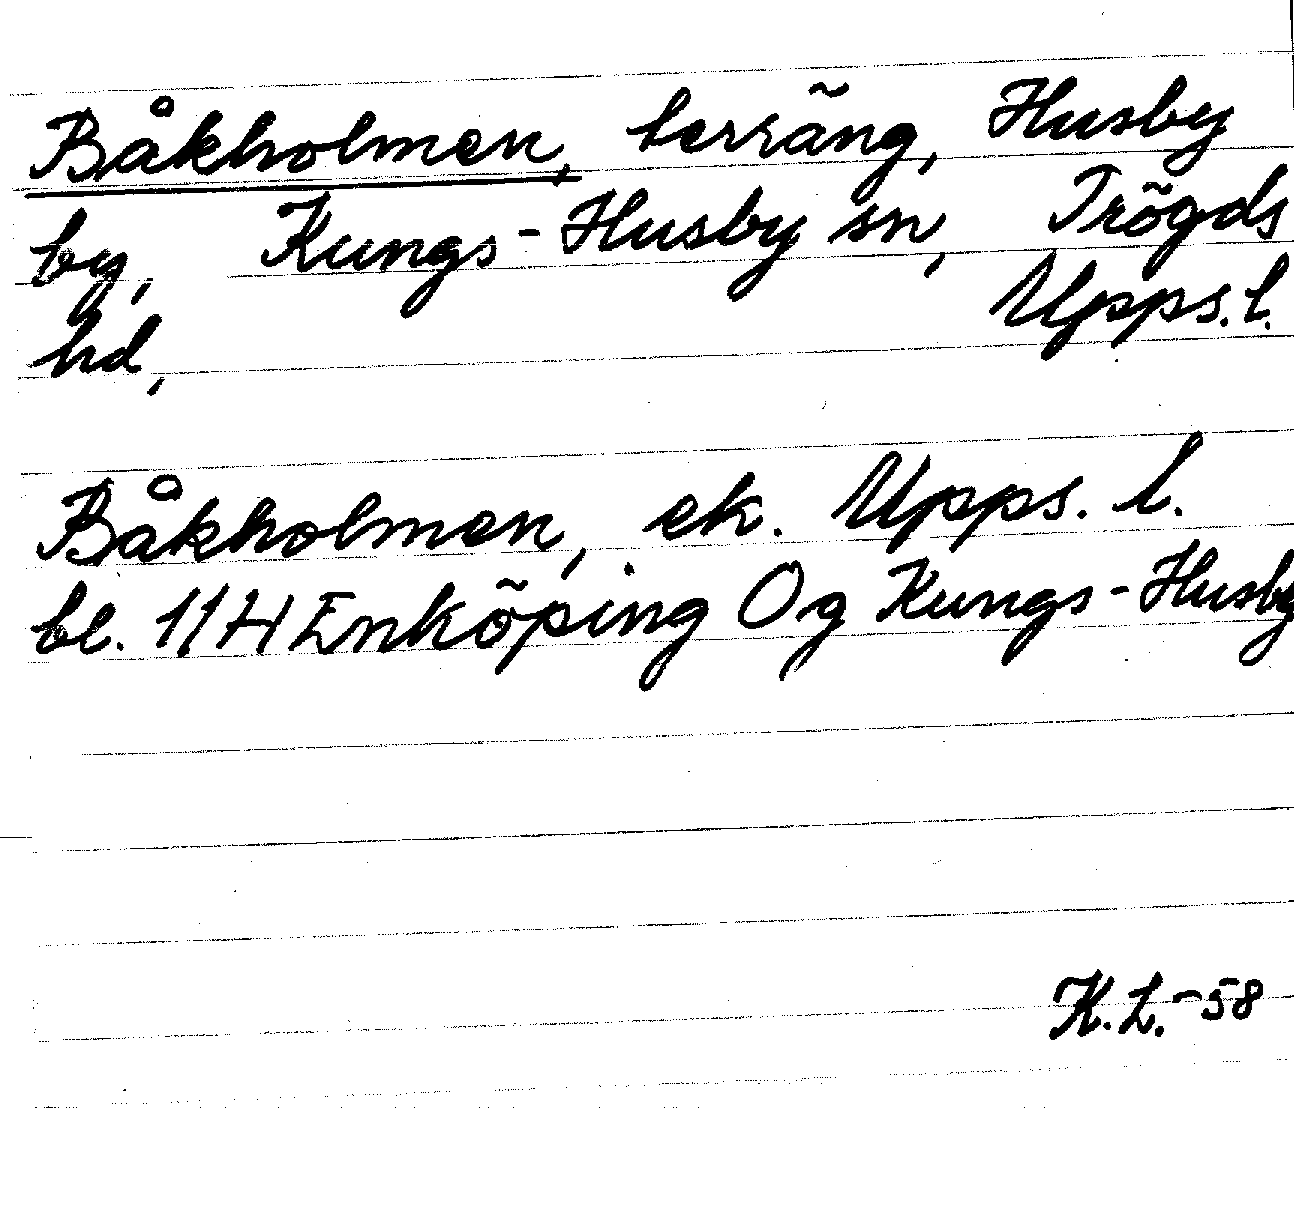 Båkholmen, terräng, Husby
by, Kungs-Husby sn, Trögds
hd, Upps.l.
Båkholmen, ek. Upps. l.
bl. 11H Enköping Og Kungs-Husby
K.L.-58